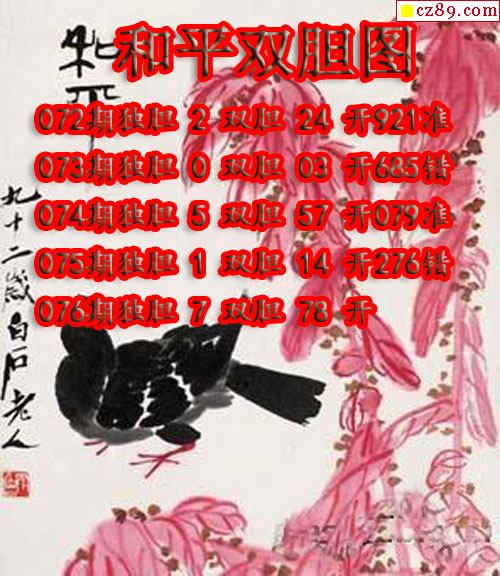 cz89.com
和平双胆图
072期独胆 2 双胆 24 开921准
073期独胆 0 双胆 03 开685错
074期独胆 5 双胆 57 开079准
075期独胆 1 双胆 14 开276错
076期独胆 7 双胆 78 开
和平
九十二岁白石老人